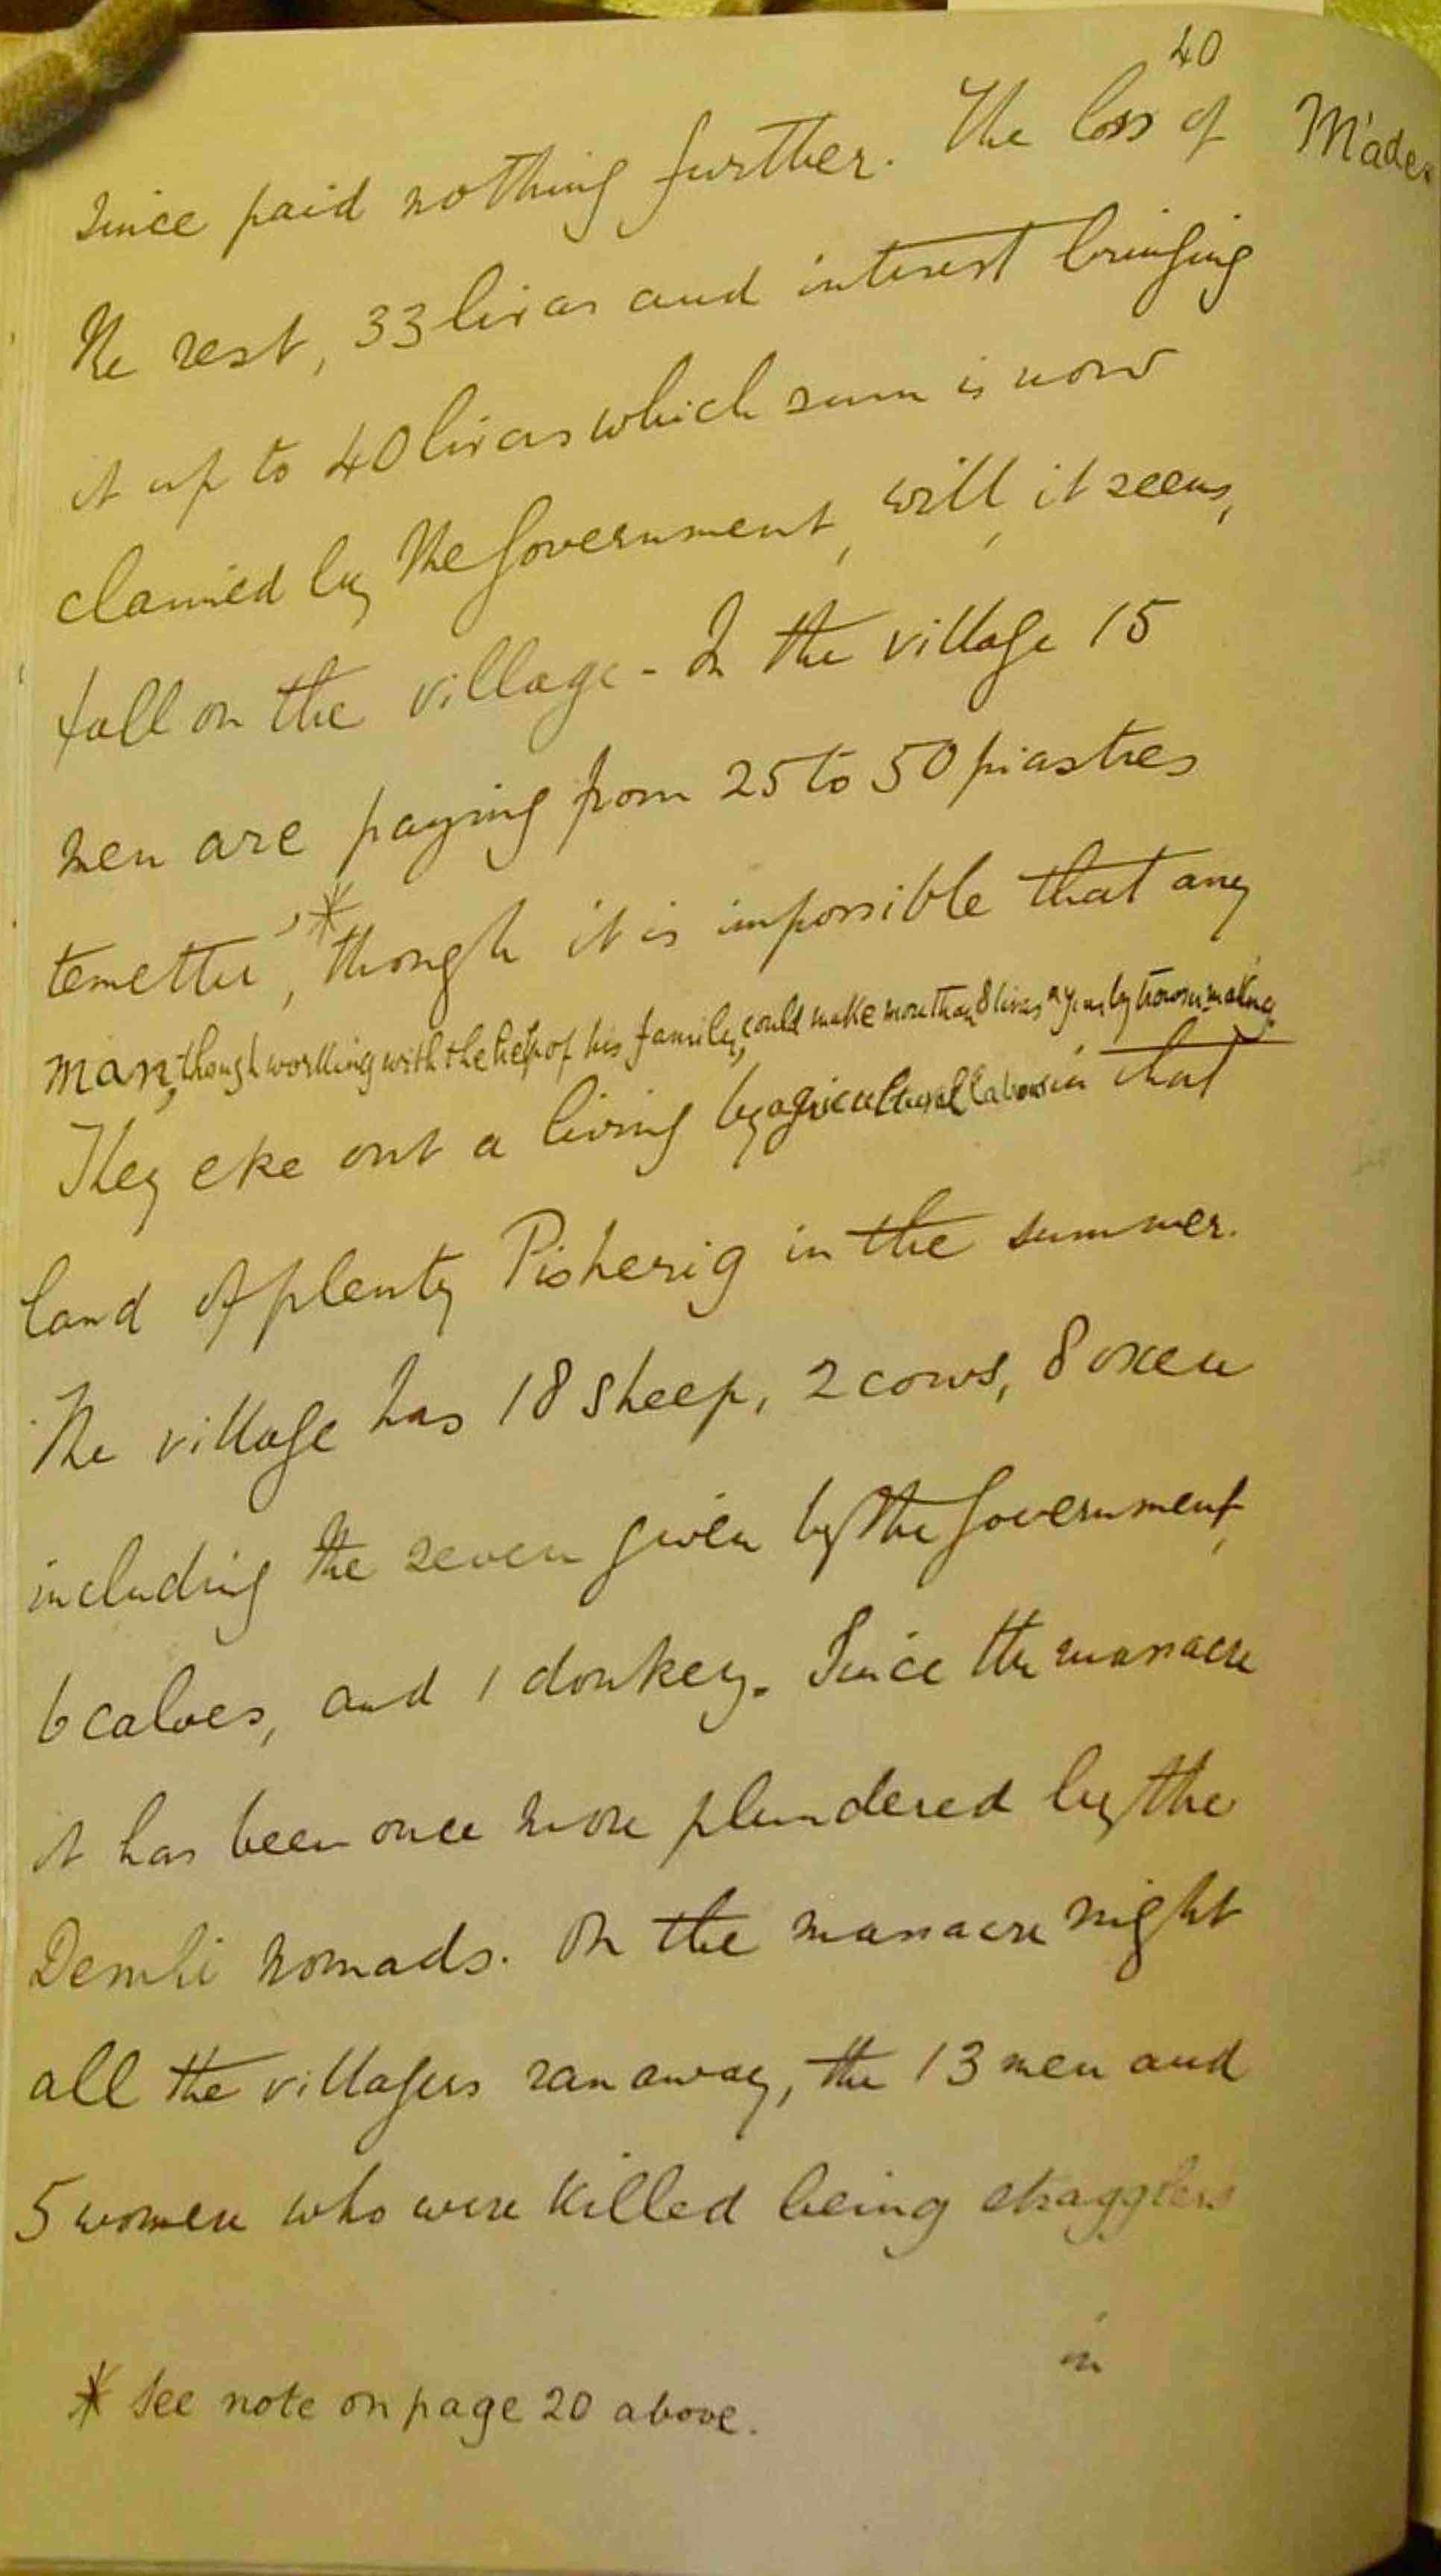 40
since paid nothing further. The loss of
the rest, 33 liras and interest bringing
it up to 40 liras which sum is now
claimed by the Government, will, it seems,
fall on the village - In the village 15
men are paying from 25 to 50 piastres
temettu, * though it is impossible that any
man, though working with the help of his family, could make more than 8 liras a year by trouser making
They eke out a living by agricultural labour in that
land of plenty Pisherig in the summer.
The village has 18 sheep, 2 cows, 8 oxen
including the seven given by the Government,
6 calves, and 1 donkey. Since the massacre
it has been once more plundered by the
nomads. On the massacre night
all the villagers ran away, the 13 men and
5 women who were killed being stragglers
in
* See note on page 20 above.